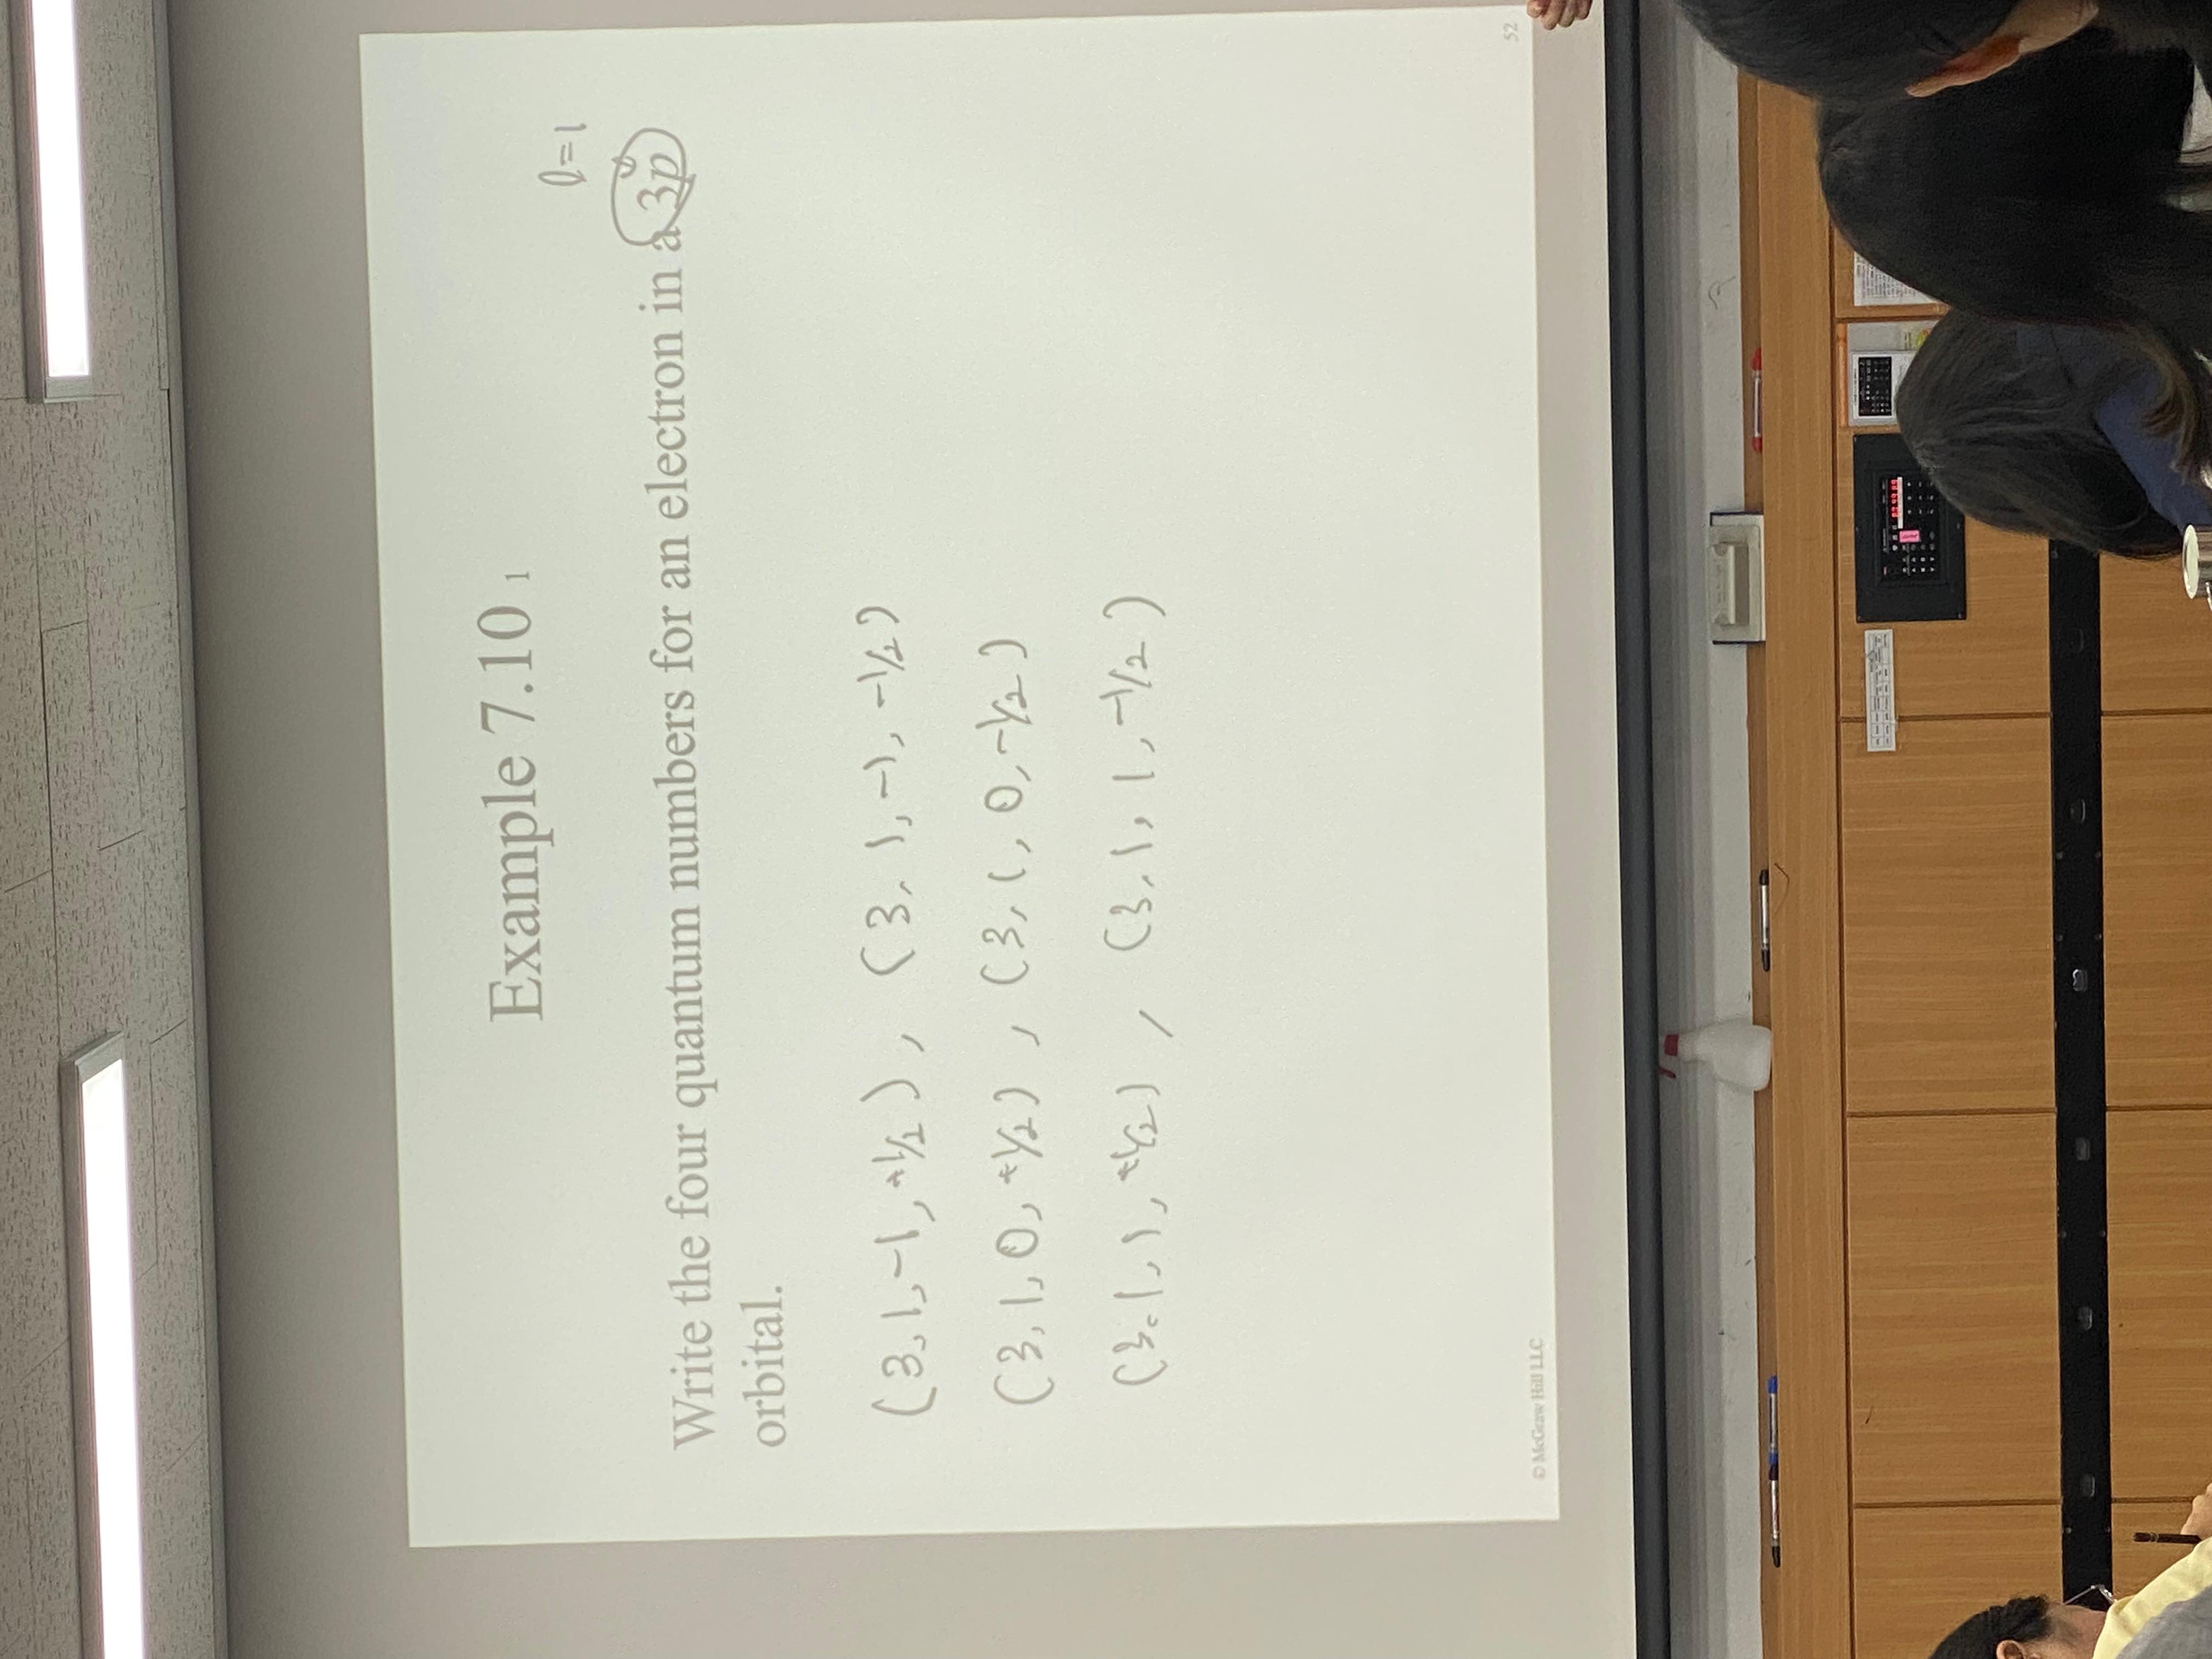 Example 7.10 1
l=1
Write the four quantum numbers for an electron in a 3p
orbital.
(3,1,-1,+1/2), (3,1,-1,-1/2)
(3,1,0,+1/2), (3,1,0,-1/2)
(3,1,1,+1/2), (3,1,1,-1/2)
© McGraw Hill LLC
52